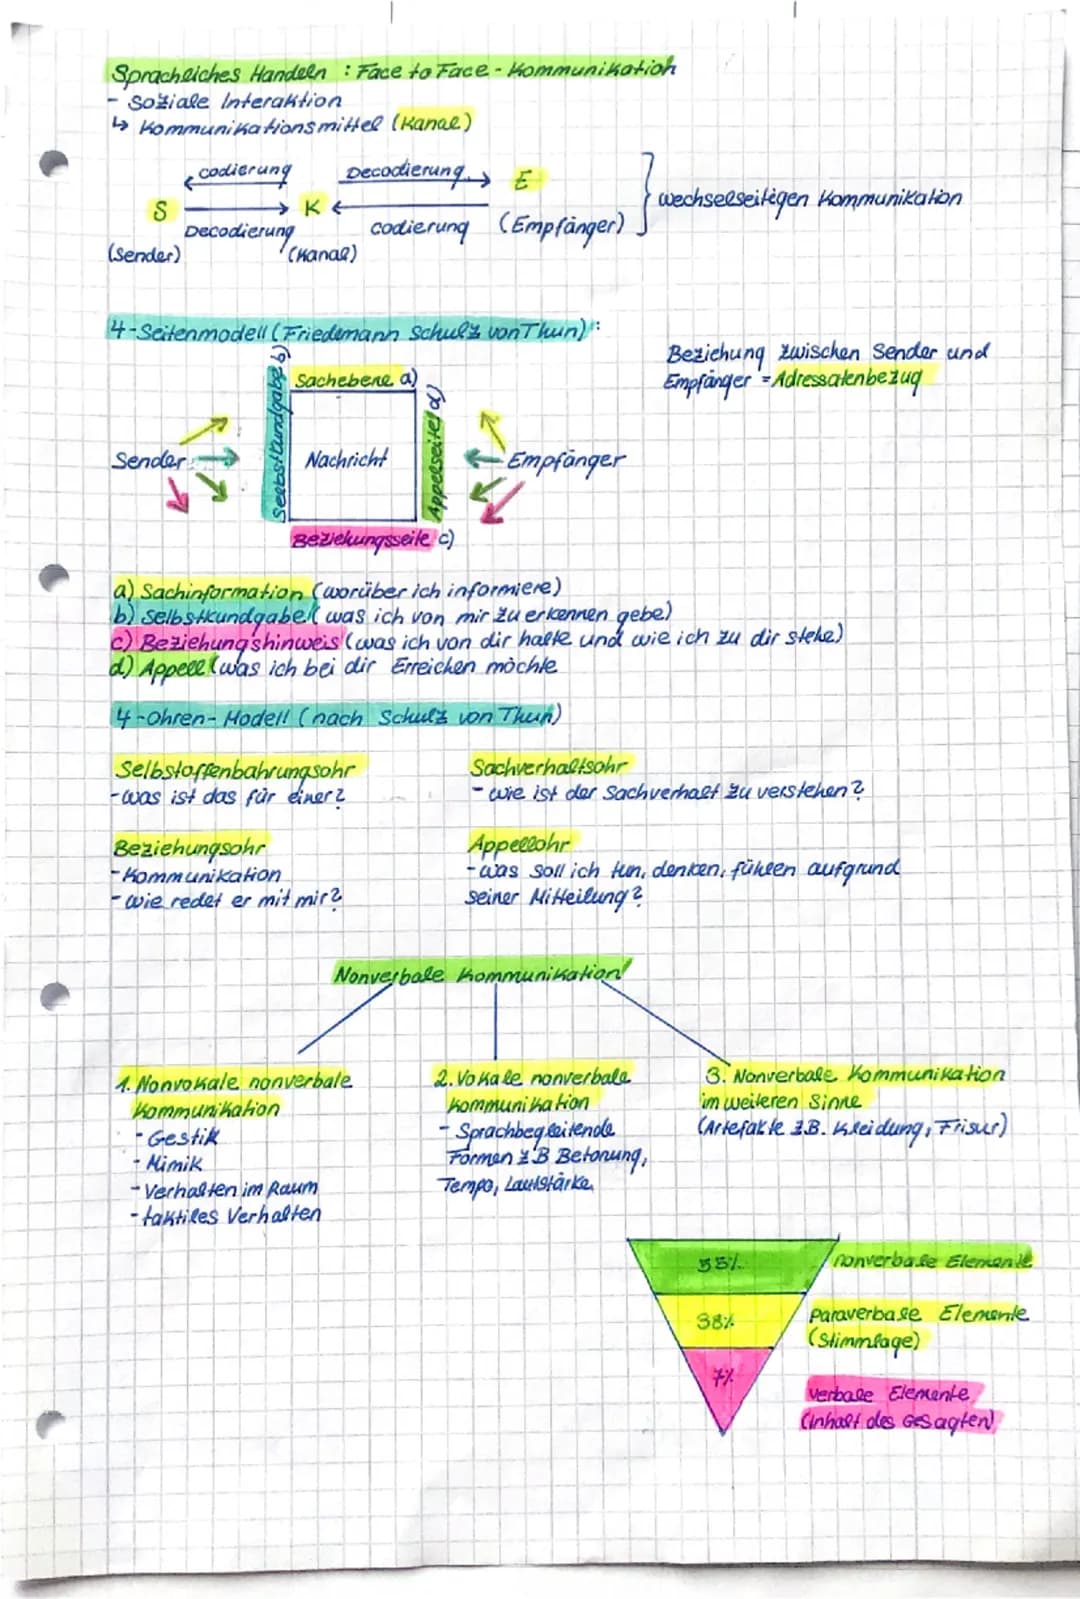 Sprachliches Handeln : Face to Face - Kommunikation
- Soziale Interaktion
↳ Kommunikationsmittel (Kanal)
codierung Decodierung E
S K
Decodierung codierung (Empfänger)
(Sender) (Kanal)
wechselseitigen Kommunikation
4-Seitenmodell (Friedemann Schulz von Thun):
Beziehung zwischen Sender und
Empfänger = Adressatenbezug
Sachebene a)
Selbstkundgabe b)
Appelseite d)
Sender Nachricht Empfänger
Beziehungsseite c)
a) Sachinformation (worüber ich informiere)
b) Selbstkundgabe (was ich von mir zu erkennen gebe)
c) Beziehungshinweis (was ich von dir halte und wie ich zu dir stehe)
d) Appell (was ich bei dir Erreichen möchte
4-Ohren-Modell (nach Schulz von Thun)
Selbstoffenbahrungsohr
- was ist das für einer?
Sachverhaltsohr
- wie ist der Sachverhalt zu verstehen?
Beziehungsohr
- Kommunikation
- wie redet er mit mir?
Appellohr
- was soll ich tun, denken, fühlen aufgrund
seiner Mitteilung?
Nonverbale Kommunikation
1. Nonvokale nonverbale
Kommunikation
- Gestik
- Mimik
- Verhalten im Raum
- taktiles Verhalten
2. Vokale nonverbale
Kommunikation
- Sprachbegleitende
Formen z.B Betonung,
Tempo, Lautstärke
3. Nonverbale Kommunikation
im weiteren Sinne
(Artefakte z.B. Kleidung, Frisur)
55% nonverbale Elemente
38% paraverbale Elemente
(Stimmlage)
7% verbale Elemente
(Inhalt des Gesagten)